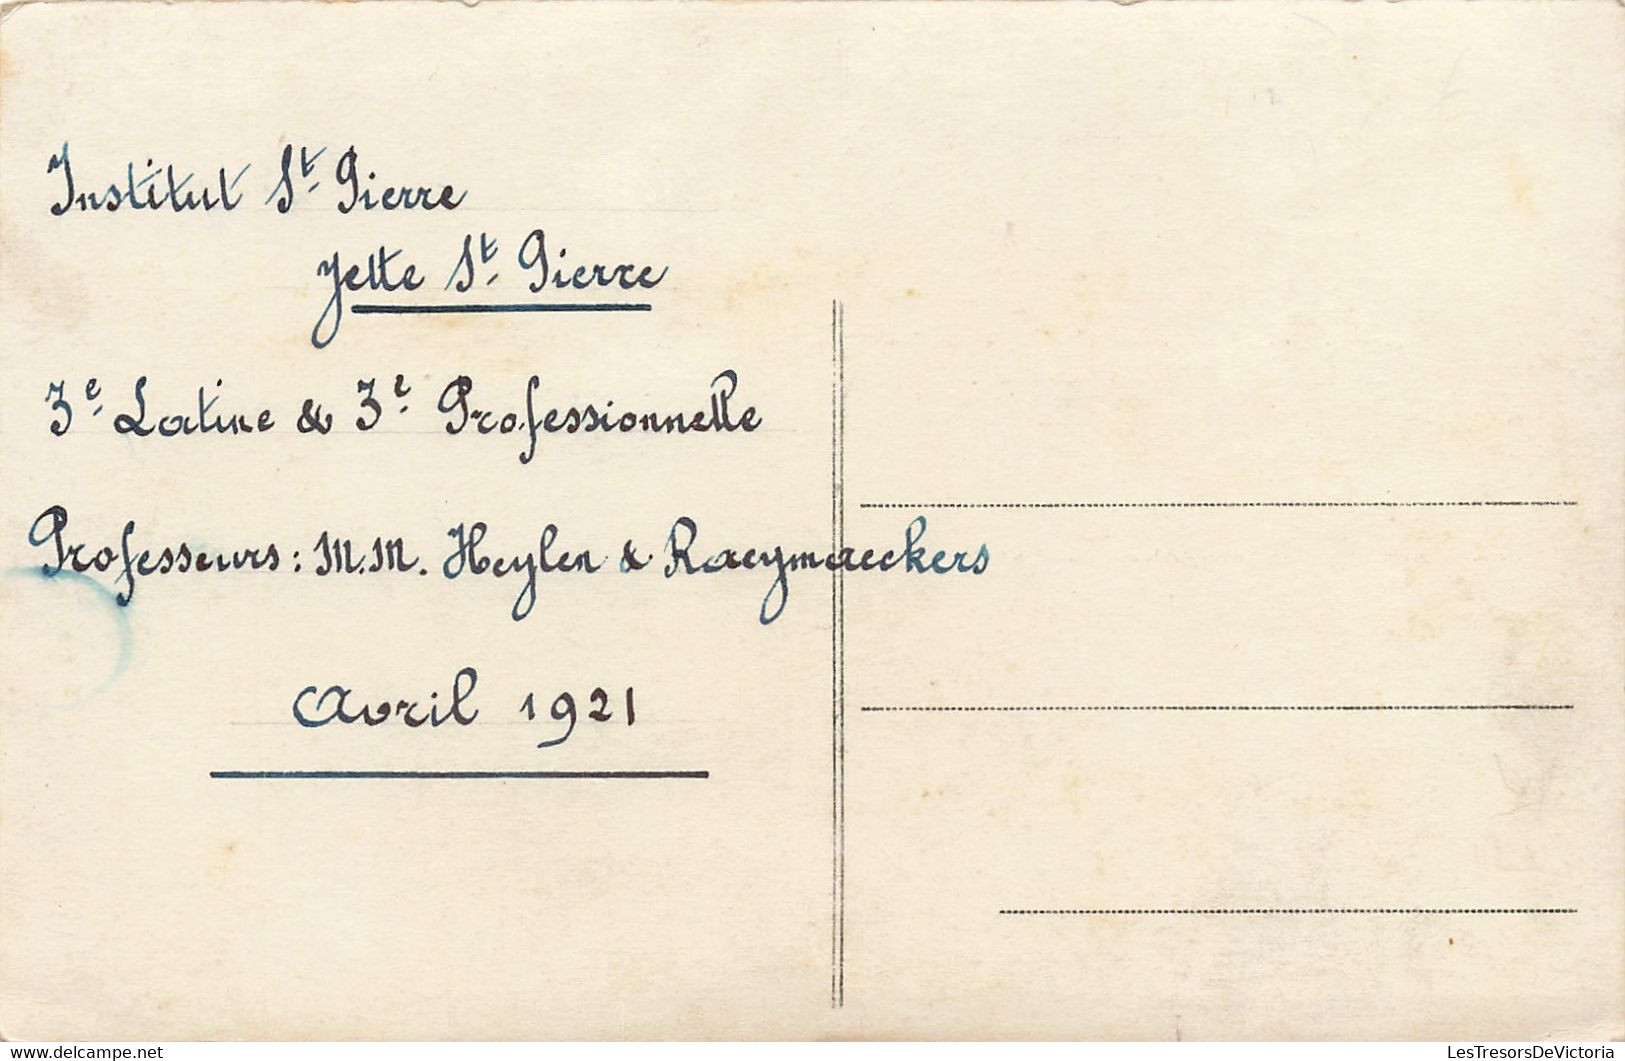 Institut St. Pierre
Jette St. Pierre
3e. Latine & 3e. Professionnelle
Professeurs : M.M. Heylen & Raeymaeckers
Avril 1921
delcampe.com
LesTresorsDeVictoria